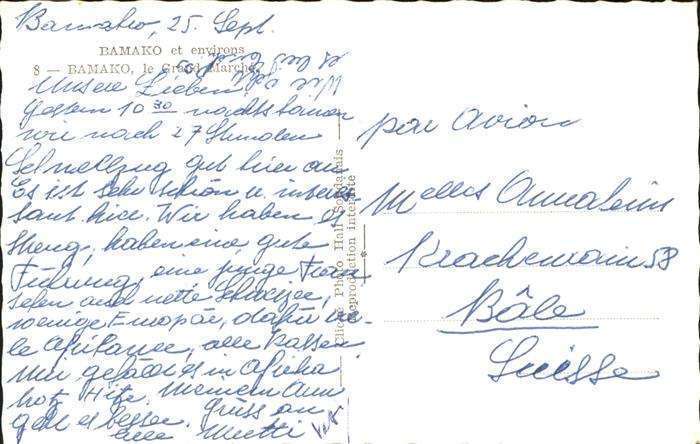 Bamako, 25. Sept.
BAMAKO et environs
8 — BAMAKO, le Grand Marché
Unsere Lieben!
Gestern 10 30 nachts kamen
wir nach 27 Stunden
Schnellzug gut hier an
Es ist sehr schön u. interes
sant hier. Wir haben es
streng, haben eine gute
Führung, eine junge Fran
sehen auch nette Schweizer,
wenige Europäe, dafür vie-
le Afrikaner, alle Rassen
Mir gefällt es in Afrika
trotz Hitze. Meinem Arm
geht es besser. Gruss an
alle Mutti
Clické Photo Hall Soudanais
Reproduction interdite
par Avion
Melles Annaheim
Krachenrain 58
Bâle
Suisse